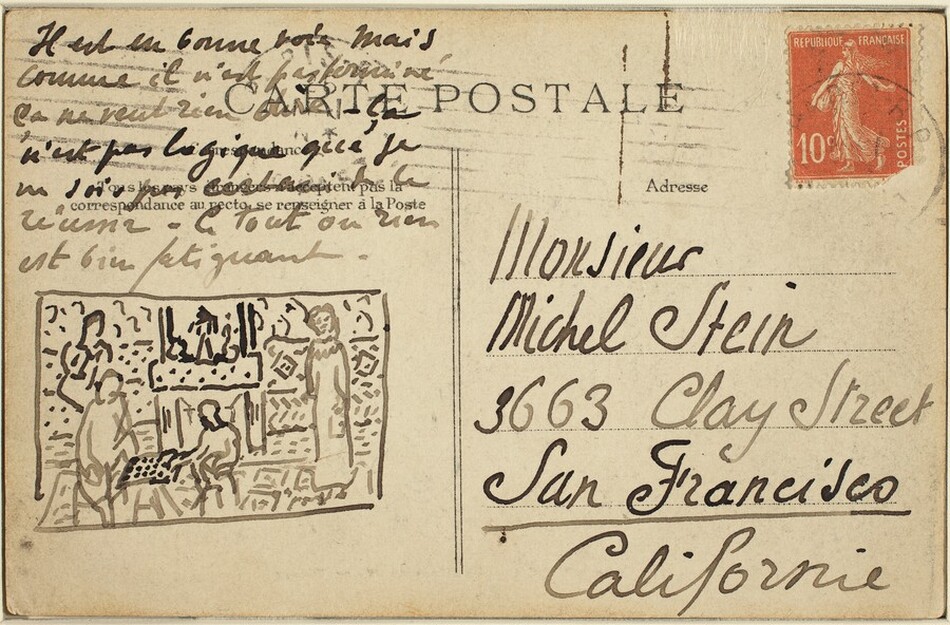 Il est en bonne voie mais
comme il n'est pas terminé
ça ne veut rien dire - Ça
n'est pas logique que je
ne sois pas certain de le
réussir - Ce tout ou rien
est bien fatigant -
CARTE POSTALE
Correspondance
Tous les pays étrangers n'acceptent pas la
correspondance au recto, se renseigner à la Poste
REPUBLIQUE FRANÇAISE
10c
POSTES
Adresse
Monsieur
Michel Stein
3663 Clay Street
San Francisco
Californie